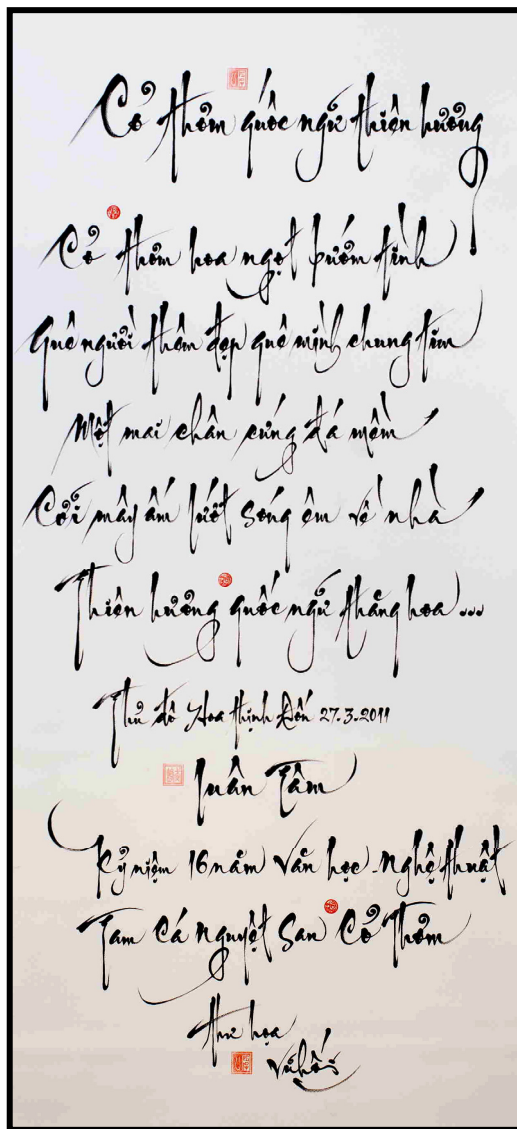 Cỏ thơm quốc ngữ thiên hương
Cỏ thơm hoa ngọt bướm tình
Quê người thơm đẹp quê mình chung tim
Một mai chân cứng đá mềm
Cưỡi mây ấm lướt sóng êm về nhà
Thiên hương quốc ngữ thăng hoa...
Thủ đô Hoa Thịnh Đốn 27.3.2011
Luân Tâm
Kỷ niệm 16 năm Văn học - Nghệ thuật
Tam Cá Nguyệt San Cỏ Thơm
Thư họa
Vũ Hối